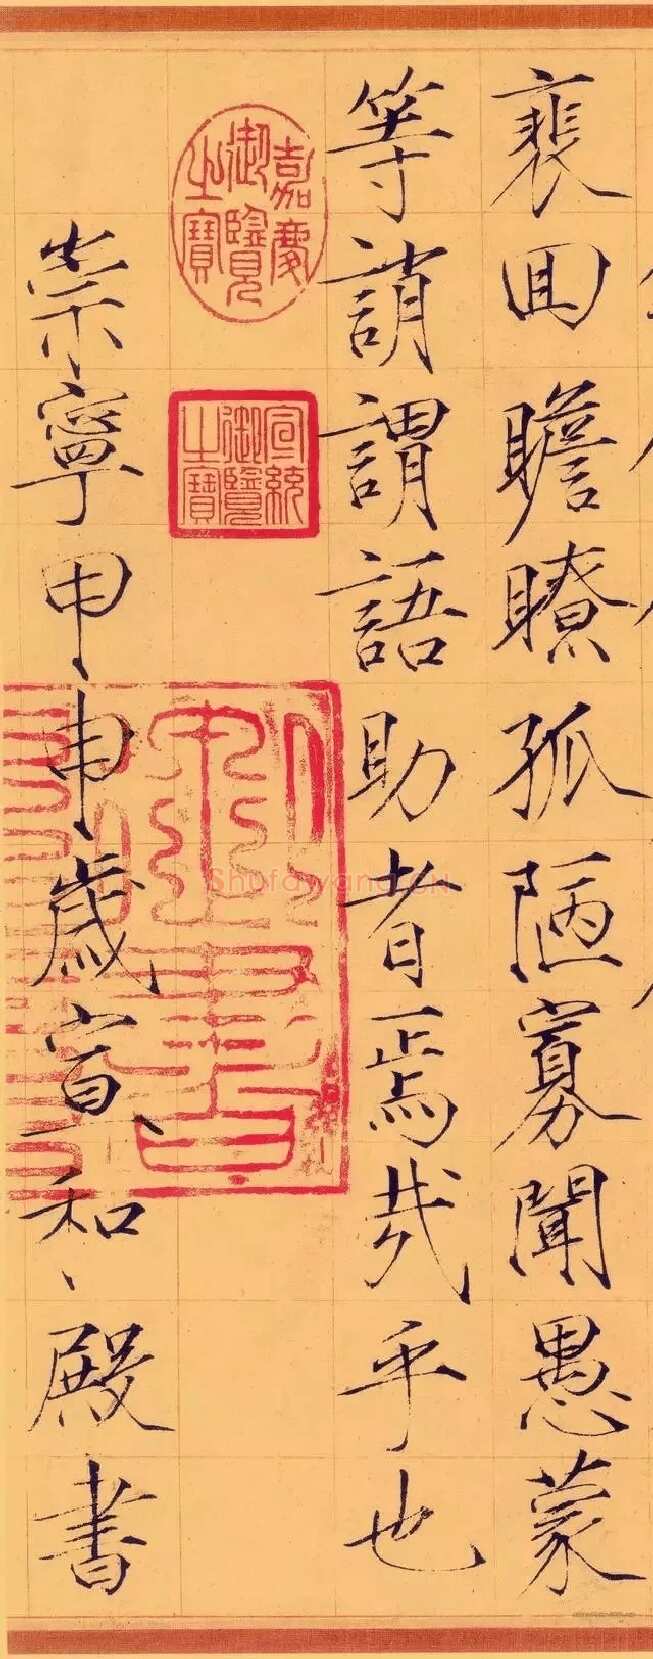 裵囬瞻瞭孤陋寡聞愚蒙
等誚謂語助者焉哉乎也
嘉慶御覽之寶
宣統御覽之寶
崇寧甲申歲宣和殿書
Shufawang.CN